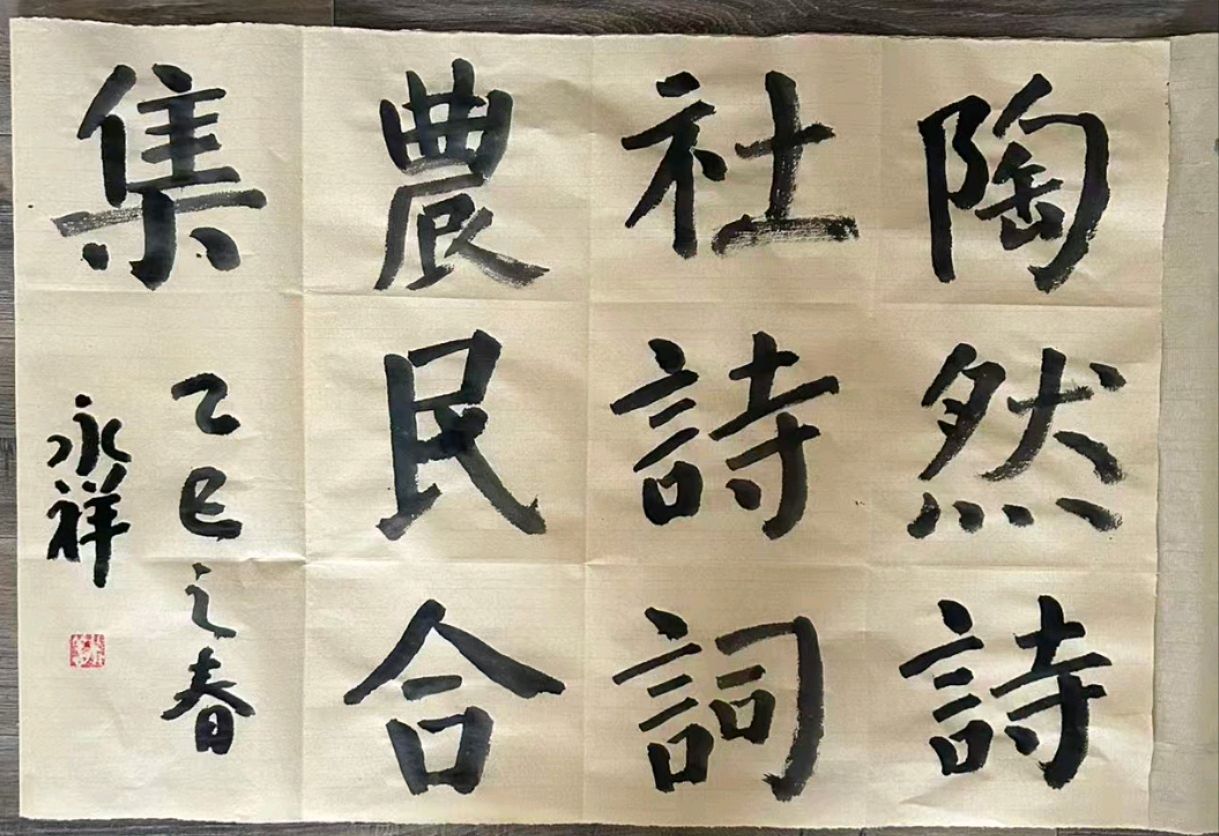 陶然詩
社詩詞
農民合
集
乙巳之春
永祥